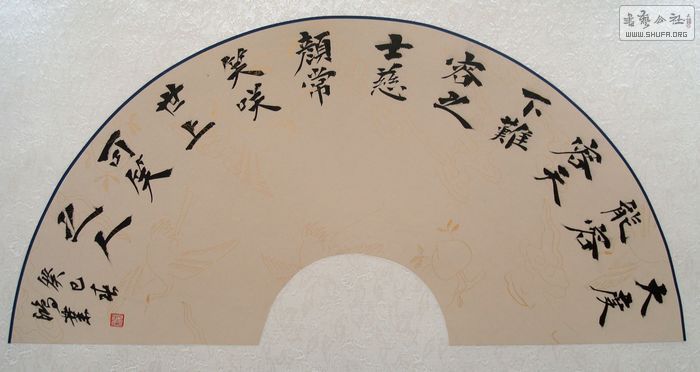 大度
能容
容天
下難
容之
士慈
顔常
笑咲
世上
可笑
之人
癸巳
书艺公社
WWW.SHUFA.ORG